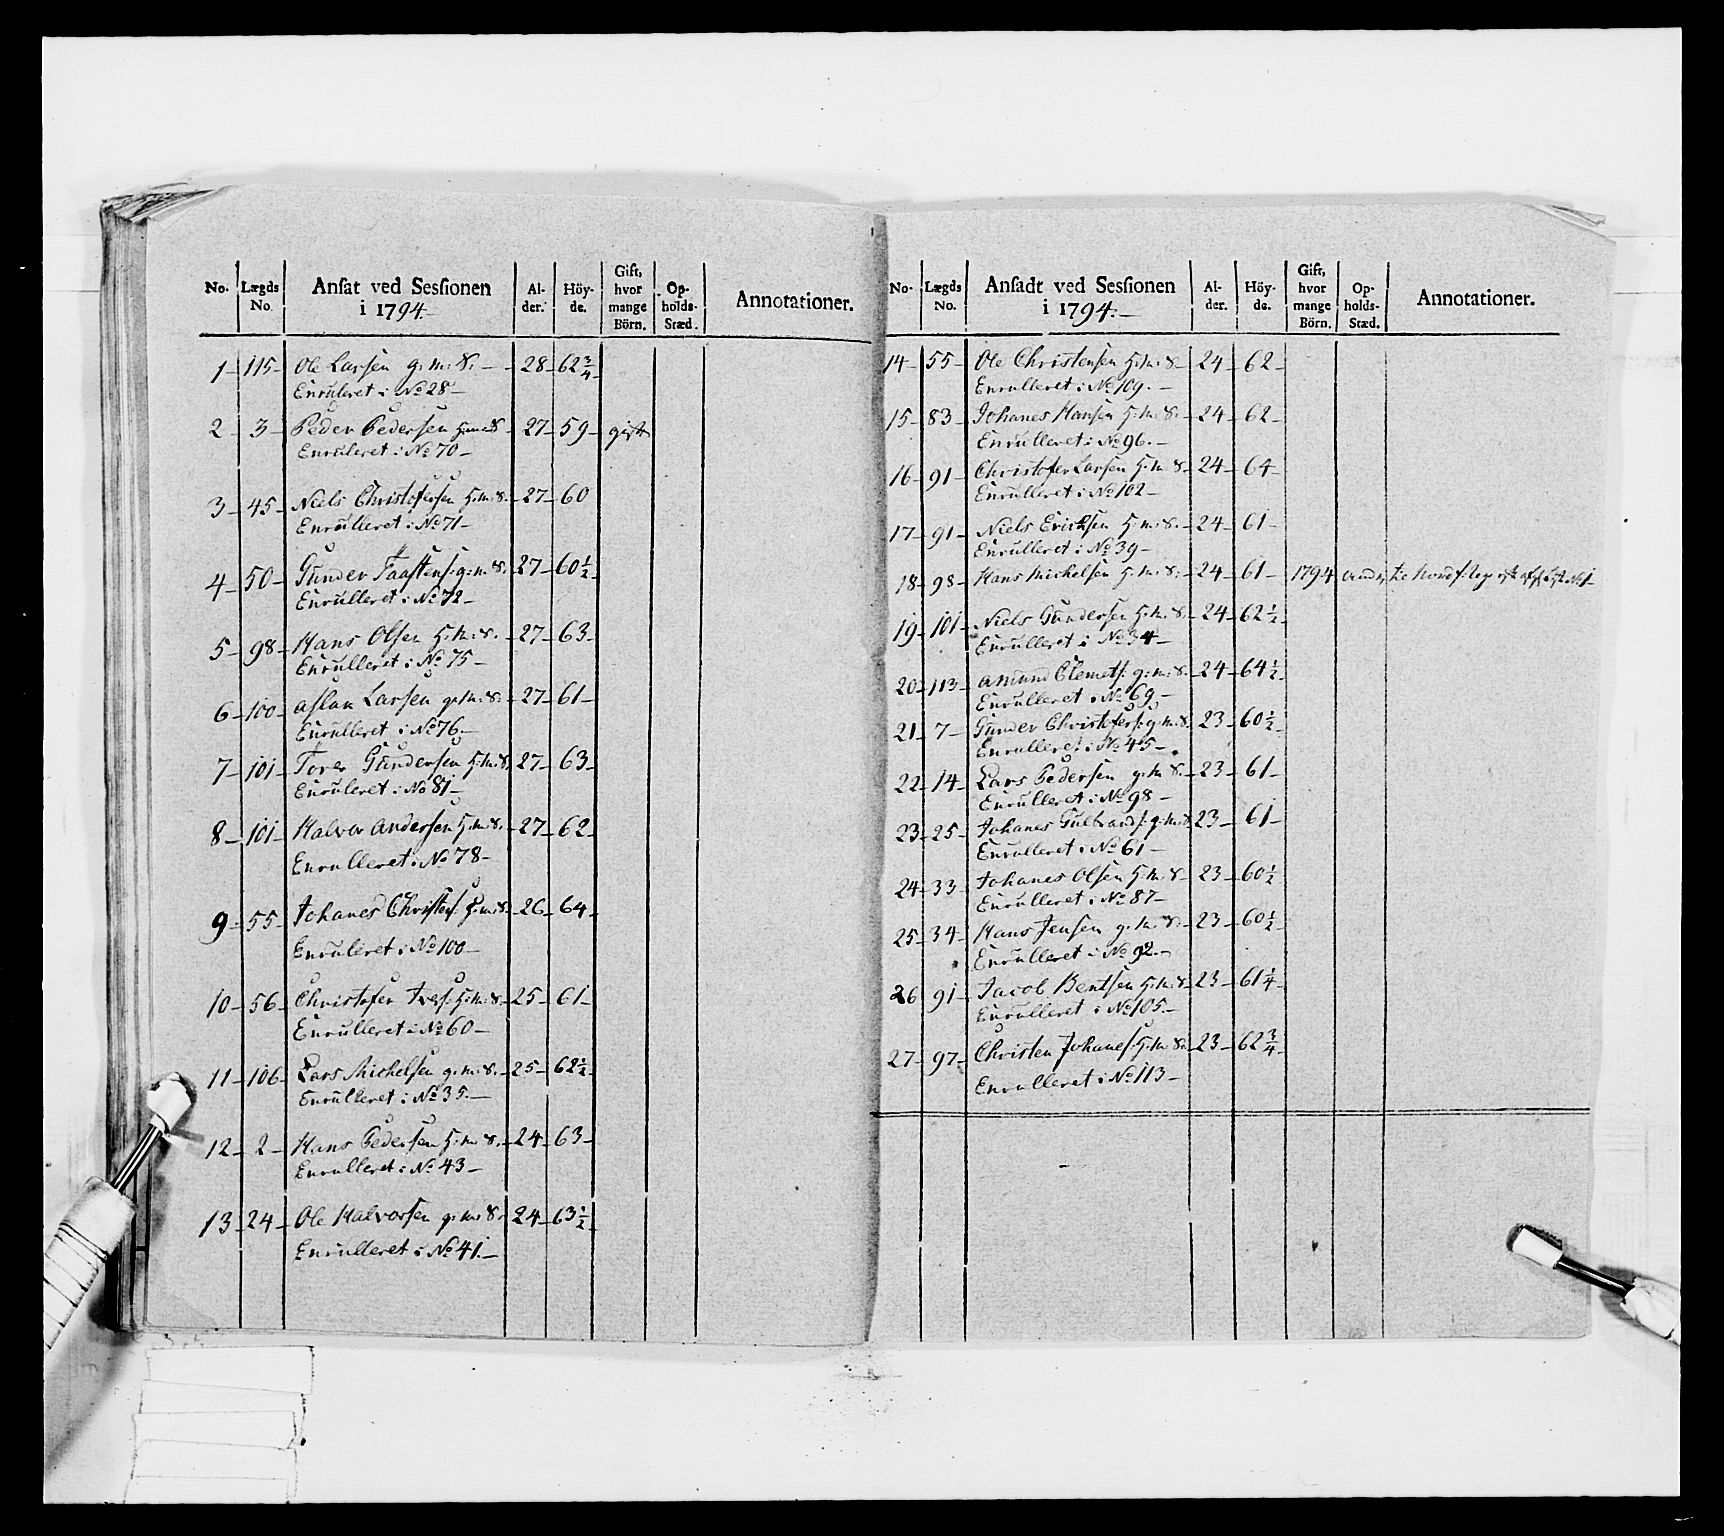 No. Lægds No. Ansat ved Sessionen i 1794.– Al-der. Höy-de. Gift, hvor mange Börn. Op-holds-Stæd. Annotationer.
1– 115– Ole Larsen g. m: S. – 28– 62 3/4–
Enruleret i No 28–
2– 3– Peder Pedersen – 27– 59– gift
Enruleret i No 70–
3– 45– Niels Christofersen H: m: S. – 27– 60
Enrulleret i No 71–
4– 50– Gunder Taastens: g: m: S. 27– 60 1/2–
Enrulleret i No 72–
5– 98– Hans Olsen H: m: S. – 27– 63–
Enrulleret i No 75–
6– 100– Aslak Larsen g: m: S. – 27– 61–
Enrulleret i No 76–
7– 101– Tores Gundersen H: m: S. 27– 63–
Enruleret i No 81–
8– 101– Halvor Andersen H: m: S. – 27– 62–
Enrulleret i No 78–
9– 55– Johanes Christens: H: m: S. – 26– 64–
Enruleret i No 100–
10– 56– Christofer Ivers: H: m: S. – 25– 61–
Enrulleret i No 60–
11– 106– Lars Michelsen g: m: S. – 25– 62 1/2–
Enrulleret i No 35.–
12– 2– Hans Pedersen H: m: S. – 24– 63–
Enrulleret i No 43–
13– 24– Ole Halvorsen g: m: S. 24– 63 1/2–
Enrulleret i No 41.–
No. Lægds No. Ansadt ved Sessionen i 1794.– Al-der. Höy-de. Gift, hvor mange Börn. Op-holds-Stæd. Annotationer.
14– 55– Ole Christensen H: m: S– 24– 62–
Enrulleret i No 109.–
15– 83– Johanes Hansen H: m: S. – 24– 62–
Enrulleret i No 96.–
16– 91– Christofer Larsen H: m S– 24– 64–
Enrulleret i No 102–
17– 91– Niels Ericksen H: m: S. – 24– 61–
Enrulleret i No 39–
18– 98– Hans Michelsen H: m: S. – 24– 61– 1794
19– 101– Niels Gundersen H: m: S. 24– 62 1/2–
Enrulleret i No 34–
20– 113– Amund Clemets: g: m: S. – 24– 64 1/2–
Enrulleret i No 69–
21– 7– Gunder Christofers: g: m: S. 23– 60 1/2–
Enrulleret i No 45–
22– 14– Lars Pedersen g: m S. – 23– 61–
Enrulleret i No 98–
23– 25– Johanes Gulbrands: g: m: S 23– 61–
Enrulleret i No 61–
24– 33– Johanes Olsen H: m: S– 23– 60 1/2
Enrulleret i No 87–
25– 34– Hans Jensen g: m: S. – 23– 60 1/2–
Enrulleret i No 92.–
26 91– Jacob Bentsen H: m: S– 23– 61 1/4–
Enrulleret i No 105.–
27– 97– Christen Johanes: H: m S. – 23– 62 3/4–
Enrulleret i No 113–